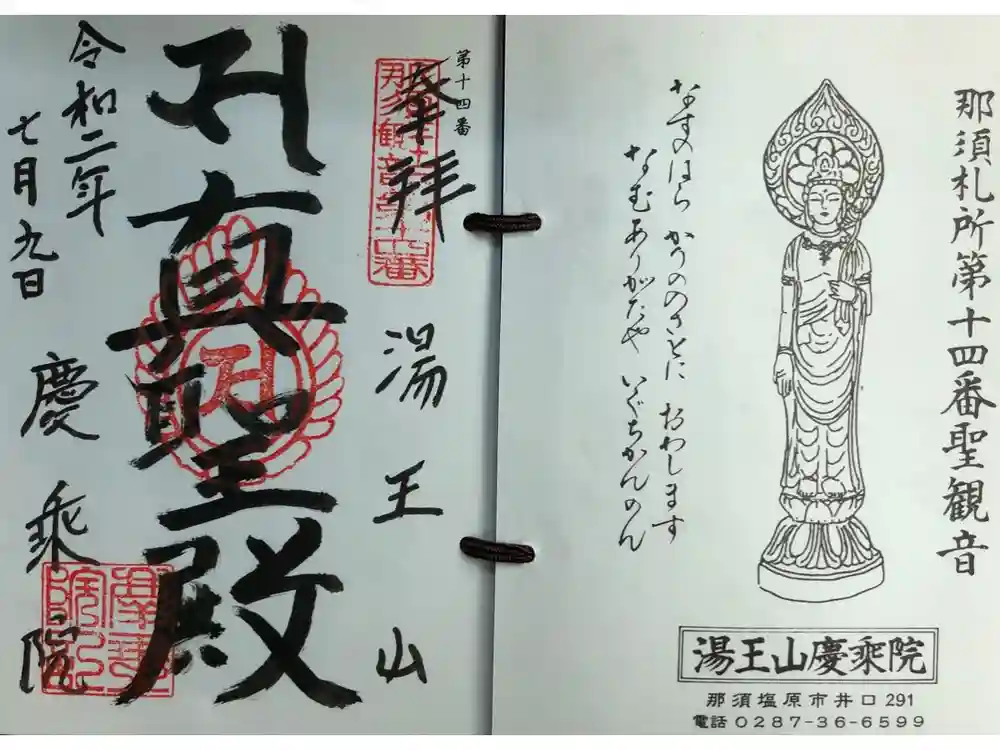 那須札所第十四番聖観音
なすのはら かうのさとに おわします
なむありがたや いぐちかんのん
湯王山慶乗院
那須塩原市井口291
電話0287-36-6599
第十四番
奉拝
湯王山
真聖殿
令和二年
七月九日
慶乗院